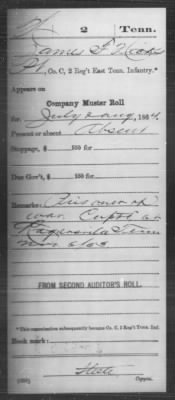 2 Tenn.
James F.
Pvt, Co. C, 2 Reg't East Tenn. Infantry.*
Appears on
Company Muster Roll
for July & Aug, 1864
Present or absent Absent
Stoppage, $ 100 for
Due Gov't, $ 100 for
Remarks: Prisoner of
war. Captd at
Rogersville Tenn
Nov 6/63
FROM SECOND AUDITOR'S ROLL.
*This organization subsequently became Co. C, 2 Reg't Tenn. Inf.
Book mark:
(858)
Copyist.